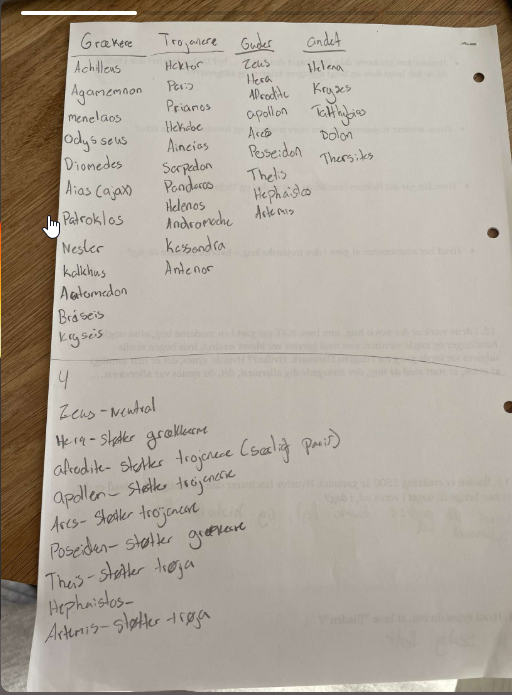 Grækere Trojanere Guder andet
Achilleus Hektor Zeus Helena
Agamemnon Paris Hera Kryses
menelaos Priamos Afrodite Talthybios
Odysseus Hekabe apollon Dolon
Diomedes Aineias Ares Thersites
Aias (ajax) Sarpedon Poseidon
Patroklos Pandaros Thetis
Nestor Helenos Hephaistos
Kalkhas Andromache Artemis
Automedon Kassandra
Briseis Antenor
Kryseis
4
Zeus - Neutral
Hera - støtter grækkerne
afrodite - støtter trojanere (særligt paris)
apollon - støtter trojanere
Ares - støtter trojanere
Poseiden - støtter grækere
Theis - støtter trøja
Hephaistos -
Artemis - støtter trøja